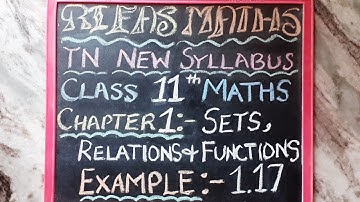 RIFAS MATHS
TN NEW SYLLABUS
CLASS 11th MATHS
CHAPTER 1:- SETS,
RELATIONS & FUNCTIONS
EXAMPLE:- 1.17